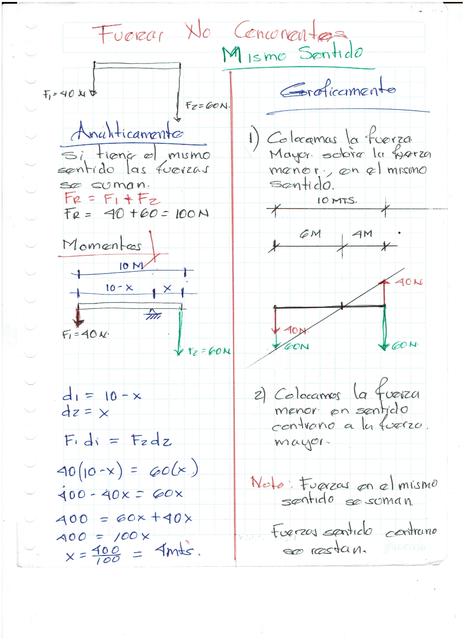 Fuerzas No Concurrentes
Mismo Sentido
F1=40N
F2=60N.
Analiticamente
Si tiene el mismo
sentido las fuerzas
se suman.
FR = F1 + F2
FR = 40 + 60 = 100N
Momentos
10 M
10-x
x
F1=40N.
F2=60N
d1 = 10-x
d2 = x
F1 d1 = F2 d2
40(10-x) = 60(x)
400 - 40x = 60x
400 = 60x + 40x
400 = 100x
x = 400/100 = 4mts.
Graficamente
1) Colocamos la fuerza
Mayor sobre la fuerza
menor, en el mismo
sentido.
10 MTS.
6M
4M
40N
40N
60N
60N
2) Colocamos la fuerza
menor en sentido
contrario a la fuerza
mayor.
Nota: Fuerzas en el mismo
sentido se suman
Fuerzas sentido contrario
se restan.